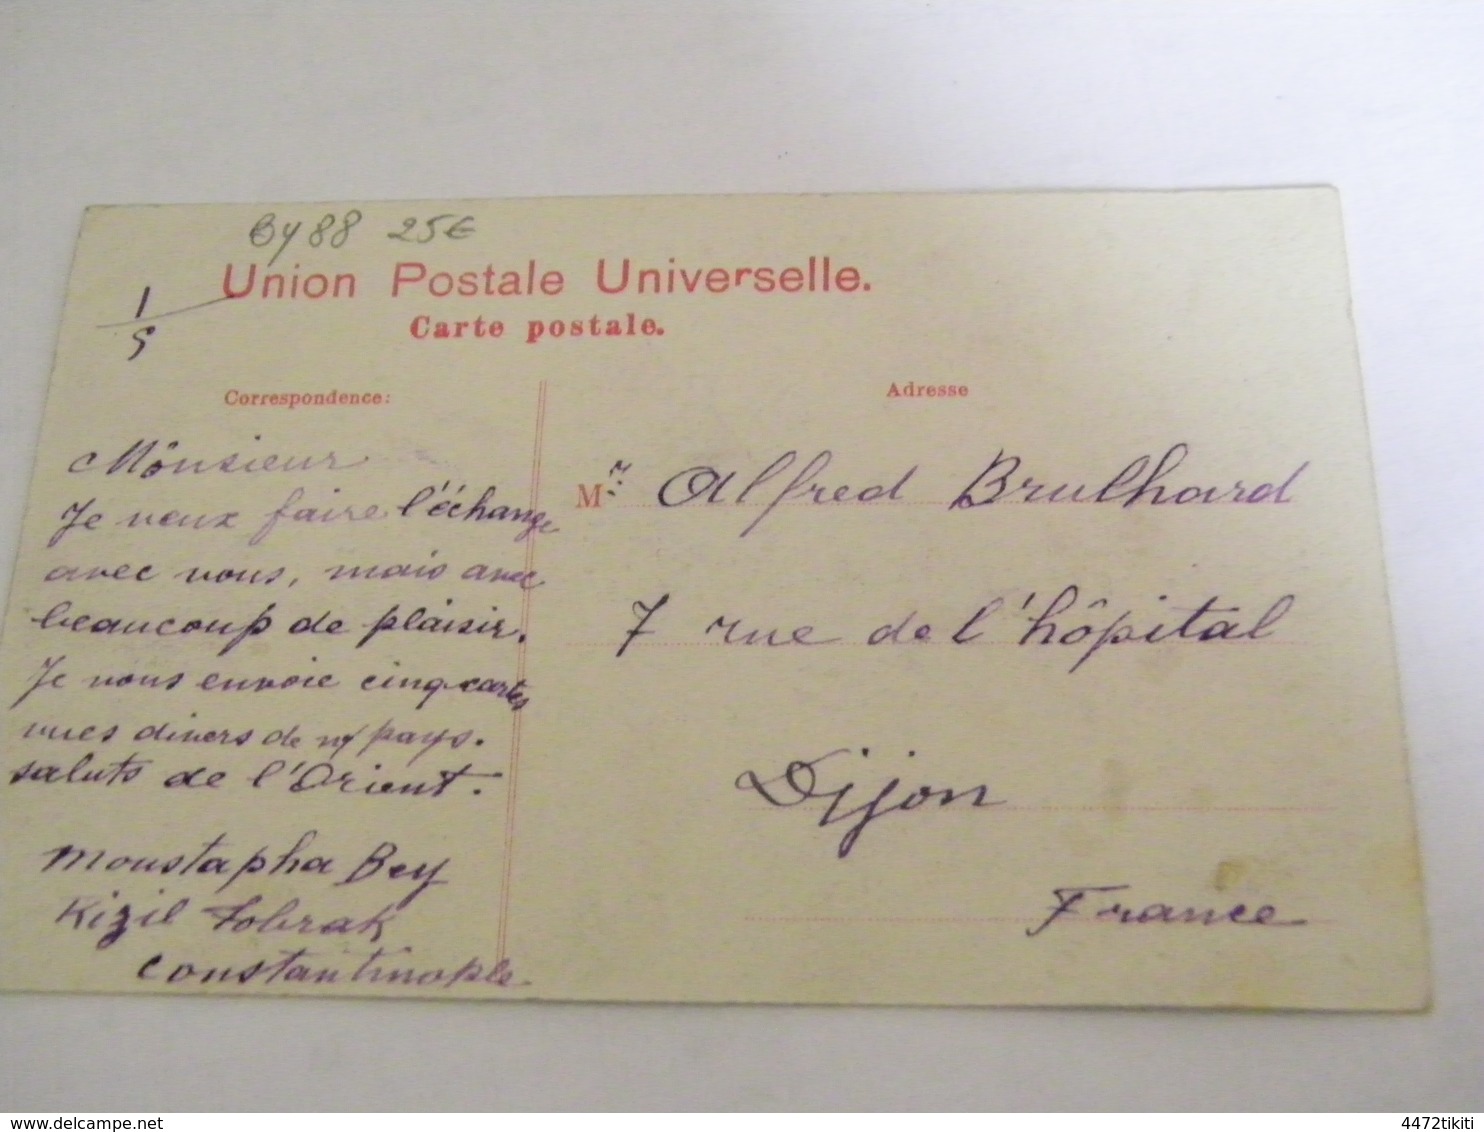 6488 25€
Union Postale Universelle.
Carte postale.
1
5
Correspondence:
Monsieur
Je veux faire l'échange
avec vous, mais avec
beaucoup de plaisir.
Je vous envoie cinq cartes
vues divers de pays.
saluts de l'Orient.
Moustapha Bey
Kizil Tobrak
Constantinople
Adresse
Mr Alfred Brulhard
7 rue de l'hôpital
Dijon
France
delcampe.net
4472tikiti